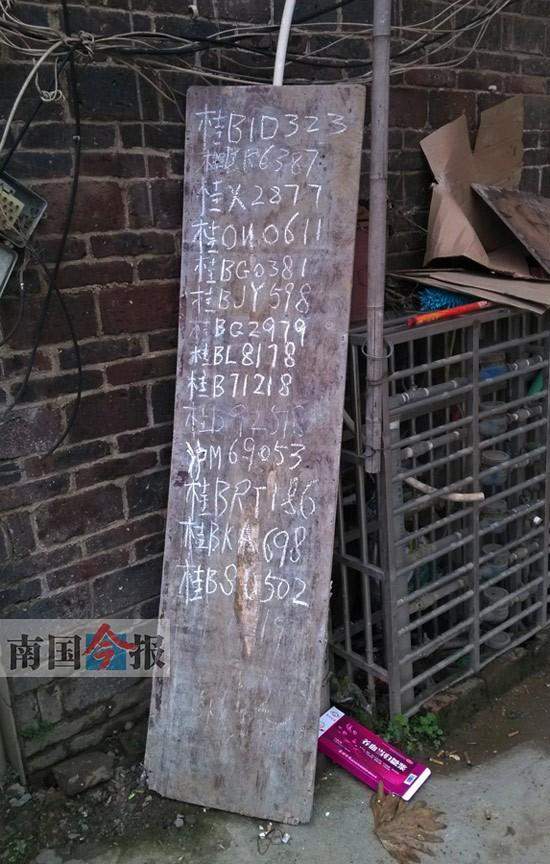 桂B1D323
桂BR6387
桂X2877
桂0N0611
桂BG0381
桂BJY598
桂BG2979
桂BL8178
桂B71218
沪M69053
桂BRT186
桂BKA698
桂BSU502
南国今报